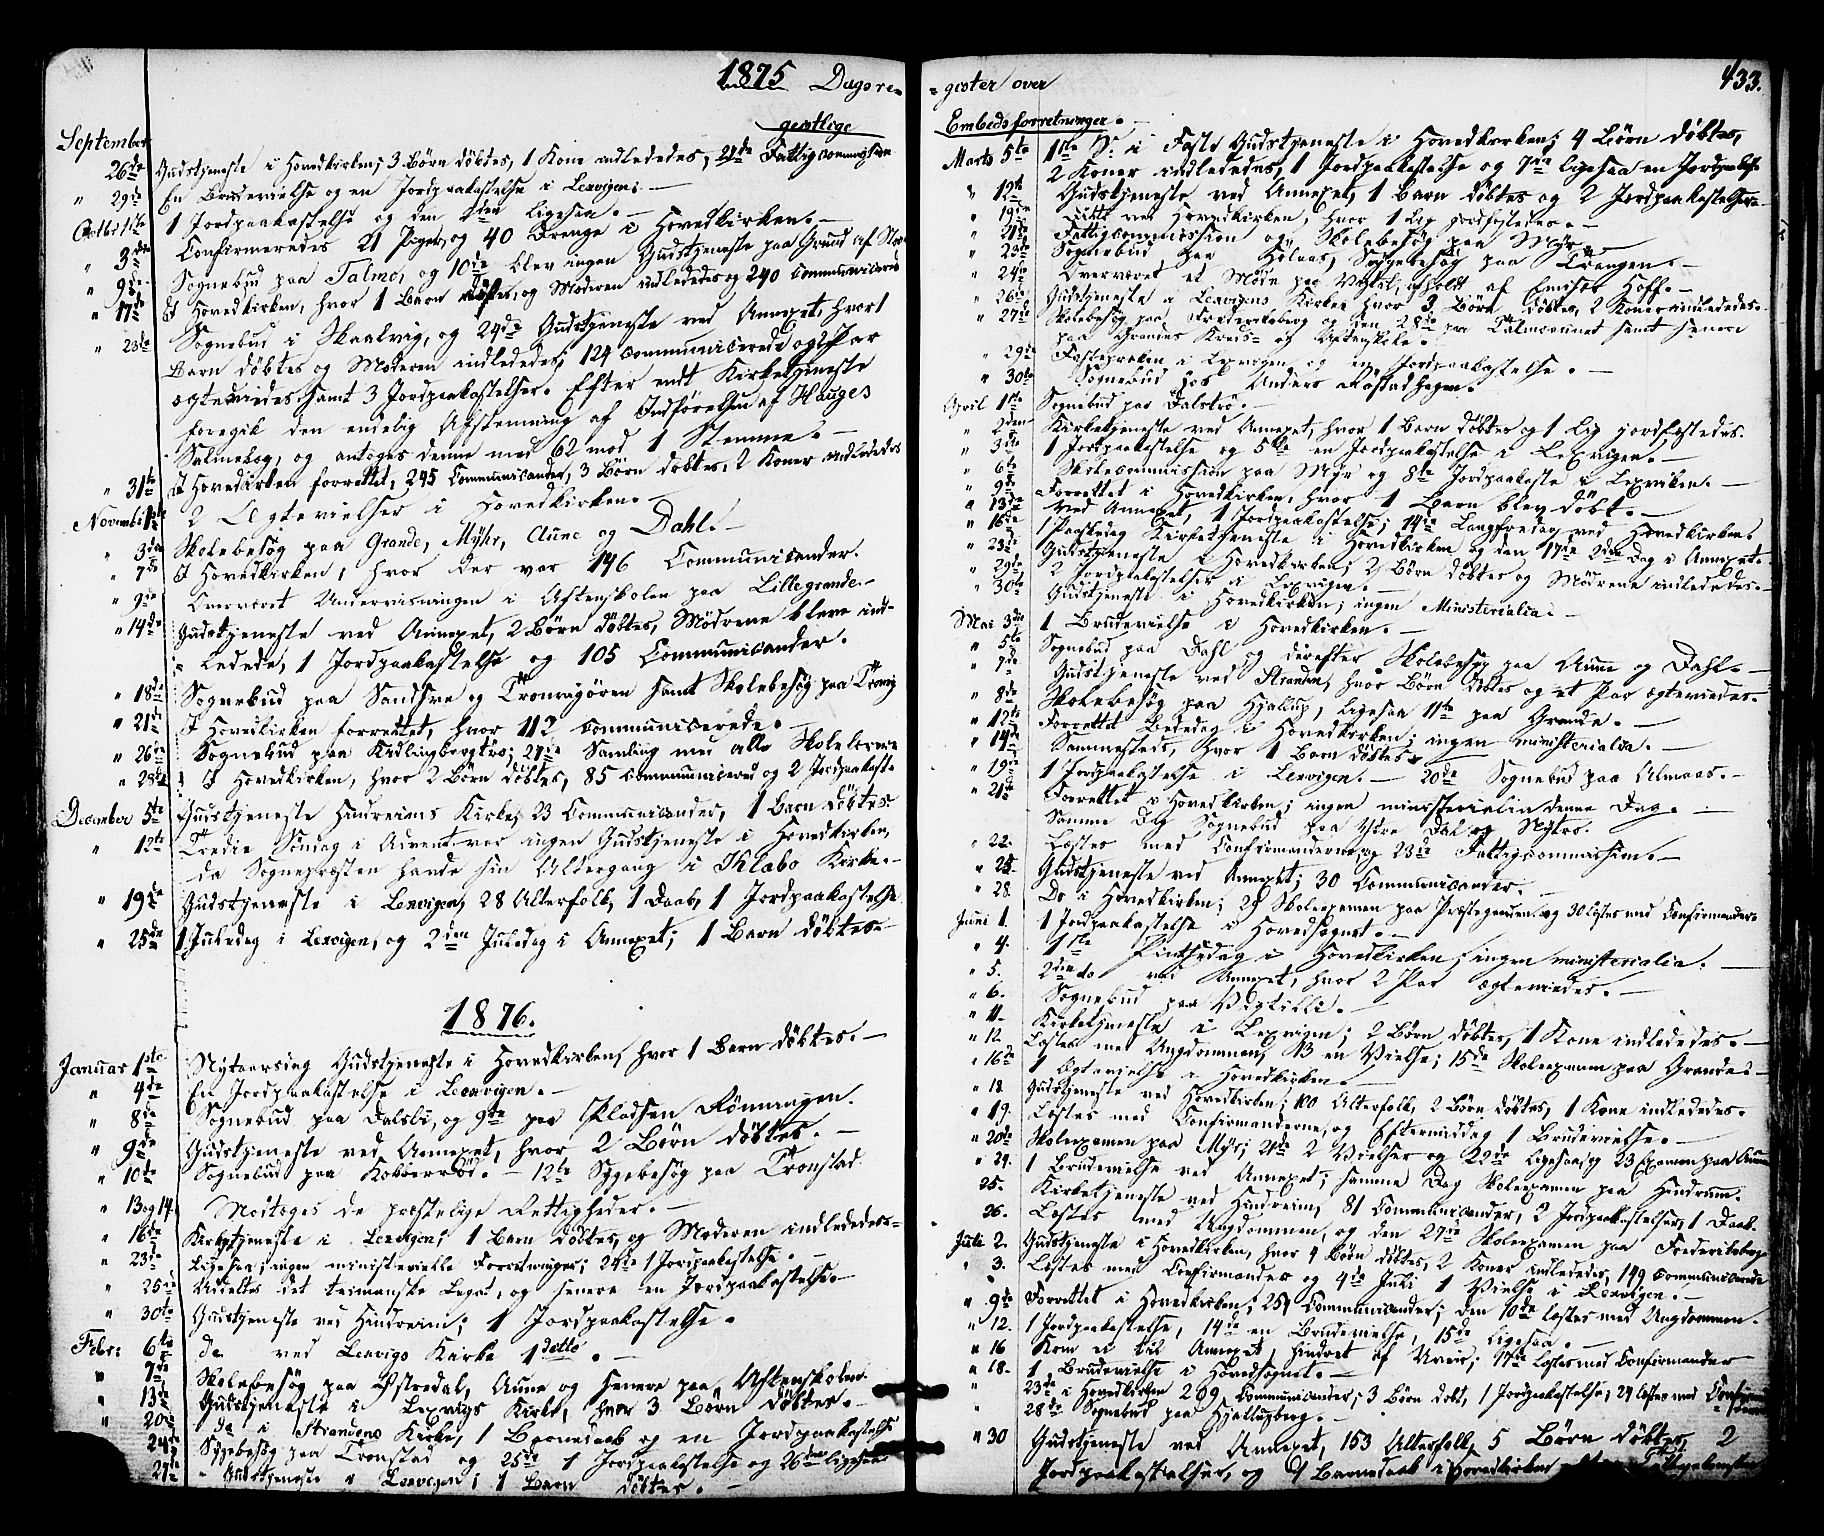 1875 Dagsre-
geistlige
September
26de Gudstjeneste i Hovedkirken; 3 Børn døbtes, 1 Kone indlededes, Fattigcommission
" 29de En Brudevielse og en Jordpaakastelse i Lexvigen. —
1 Jordpaakastelse og den ligesaa. —
" 3die Confirmeredes 21 Piger og 40 Drenge i Hovedkirken. —
" 9de Sognebud paa Talmo, og 10de blev ingen Gudstjeneste paa Grund af
" 17de I Hovedkirken, hvor 1 Barn døbtes, og Moderen indlededes og 240 communicerede
" 23de Sognebud i Skaalvig, og 24de Gudstjeneste ved Annexet, hvor 1
Barn døbtes og Moderen indlededes; 124 communicerede og 1 Par
ægteviedes samt 3 Jordpaakastelser. Efter endt Kirketjeneste
foregik den endelig Afstemning af Indførelsen af Hauges
Salmebog, og antoges denne med 62 mod 1 Stemme. —
" 31te I Hovedkirken forrettet, 245 Communicander, 3 Børn døbtes, 2 Koner indlededes
2 Ægtevielser i Hovedkirken. —
" 3die Skolebesøg paa Grande, Myhr, Aune og Dahl. —
" 7de I Hovedkirken, hvor der var 146 Communicander.
" 9de Overværet Undervisningen i Aftenskolen paa Lillegrande. —
" 14de Gudstjeneste ved Annexet, 2 Børn døbtes, Mødrene bleve ind-
ledede, 1 Jordpaakastelse og 105 Communicander.
" 18de Sognebud paa Sandsre og Tronvigøren samt Skolebesøg paa Tronvig
" 21de I Hovedkirken forrettet, hvor 112 communicerede. —
" 26de Sognebud paa ; 27de Samling med alle Skolelærere
" 28de I Hovedkirken, hvor 2 Børn døbtes, 85 communicered og 2 Jordpaakast.
December 5te Gudstjeneste Hindreims Kirke, 23 Communicander, 1 Barn døbtes
" 12te Tredie Søndag i Advent var ingen Gudstjeneste i Hovedkirken,
da Sognepræsten havde sin Altergang i Klæbo Kirke. —
" 19de Gudstjeneste i Lexvigen, 28 Alterfolk, 1 Daab, 1 Jordpaakastelse
" 25de 1 Juledag i Lexvigen, og 2den Juledag i Annexet; 1 Barn døbtes —
1876.
Januar 1ste Nytaarsdag Gudstjeneste i Hovedkirken, hvor 1 Barn døbtes. —
" 4de En Jordpaakastelse i Lexvigen. —
" 8de Sognebud paa Dalsli, og 9de paa Pladsen Rønningen.
" 9de Gudstjeneste ved Annexet, hvor 2 Børn døbtes. —
" 10de Sognebud paa . — 12te Sygebesøg paa Tronstad
" 13 og 14 Modtoges de præstelige Rettigheder. —
" 16de Kirketjeneste i Lexvigen; 1 Barn døbtes, og Moderen indlededes —
" 23de Ligesaa; ingen ministerielle Forretninger; 24de 1 Jordpaakastelse. —
" 25de Uddeltes det Legat, og senere en Jordpaakastelse —
" 30te Gudstjeneste ved Hindreim; 1 Jordpaakastelse.
Febr: 6te do ved Lexvigs Kirke 1 detto. —
" 7de Skolebesøg paa Østredal, Aune og senere paa Aftenskolen
" 13de Gudstjeneste i Lexvigs Kirke, hvor 3 Børn døbtes. —
" 20de do i Strandens Kirke, 1 Barnedaab og en Jordpaakastelse
24de Sygebesøg paa Tronstad og 25de 1 Jordpaakastelse og 26de ligesaa
27de Gudstjeneste i Lexvigen; 1 Barn døbtes. —
gister over 433.
Embedsforretninger. —
Marts 5te 1ste S: i Faste Gudstjeneste i Hovedkirken; 4 Børn døbtes,
2 Koner indlededes, 1 Jordpaakastelse og 7de ligesaa en Jordpaak.
" 12te Gudstjeneste ved Annexet, 1 Barn døbtes og 2 Jordpaakastelser —
" 19de Ditto ved Hovedkirken, hvor 1 Lig jordfæstedes. —
" 21de Fattigcommission og Skolebesøg paa Myr. —
" 23de Sognebud paa Hølaas, Sygebesøg paa Trangen. —
" 24de Overværet et Møde paa , afholdt af Emisær Hoff. —
" 26de Gudstjeneste i Lexvigens Kirke, hvor 3 Børn døbtes, 2 Koner indlededes.
" 27de Skolebesøg paa Frederiksberg og den 28de paa samt senere
paa Grandes Kreds- og Aftenskole. —
" 29de Fasteprøken i Lexvigen og en Jordpaakastelse. —
" 30te Sognebud hos Anders Røstadhagen.
April 1ste Sognebud paa Dalstrø. —
" 2den Kirketjeneste ved Annexet, hvor 1 Barn døbtes og 1 Lig jordfæstedes.
" 3die 1 Jordpaakastelse og 5te en Jordpaakastelse i Lexvigen. —
" 6te Skolecommission paa Myr og 8de Jordpaakaste i Lexviken. —
" 9de Forrettet i Hovedkirken, hvor 1 Barn blev døbt. —
" 13de Ved Annexet, 1 Jordpaakastelse; 14de Langfredag ved Hovedkirken
" 16de 1 Paaskedag Kirketjeneste i Hovedkirken og den 17de 2den Dag i Annexet —
" 23de Gudstjeneste i Hovedkirken; 2 Børn døbtes og Mødrene indlededes. —
" 29de 2 Jordpaakastelser i Lexvigen. —
" 30te Gudstjeneste i Hovedkirken; ingen Ministerialia. —
Mai 3die 1 Brudevielse i Hovedkirken. —
" 5te Sognebud paa Dahl og derefter Skolebesøg paa Aune og Dahl —
" 7de Gudstjeneste ved Stranden, hvor Børn døbtes og et Par ægteviedes. —
" 8de Skolebesøg paa Hjallup, ligesaa 11te paa Grande. —
" 12te Forrettet Bededag i Hovedkirken; ingen ministerialia. —
" 14de Sammesteds, hvor 1 Barn døbtes. —
" 19de 1 Jordpaakastelse i Lexvigen. — 20de Sognebud paa Almaas. —
" 21de Forrettet i Hovedkirken; ingen ministerialia denne Dag. —
Samme Dag Sognebud paa Ydre Dal og Nytrø.
" 22. Læstes med Confirmanderne, og 23de Fattigcommission. —
" 25. Gudstjeneste ved Annexet; 30 Communicander. —
" 28. Do i Hovedkirken; 29 Skoleexamen paa Præstegaarden og 30 læstes med Confirmander
Juni 1. 1 Jordpaakastelse i Hovedsognet. —
" 4. 1ste Pintsedag i Hovedkirken; ingen ministerialia. —
" 5. 2den do ved Annexet, hvor 2 Par ægteviedes. —
" 6. Sognebud paa . —
" 11. Kirketjeneste i Lexvigen; 2 Børn døbtes, 1 Kone indlededes. —
" 12. Læstes med Ungdommen, 13 en Vielse; 15de Skoleexamen paa Grande —
" 16de 1 Ægtevielse i Hovedkirken. —
" 18. Gudstjeneste ved Hovedkirken; 100 Alterfolk, 2 Børn døbtes, 1 Kone indlededes.
" 19. Læstes med Confirmanderne, og Eftermiddag 1 Brudevielse. —
" 20de Skoleexamen paa Myr; 21de 2 Vielser og 22de ligesaa, og 23 Examen paa Aune
" 24. 1 Brudevielse ved Annexet; samme Dag Skoleexamen paa Hindrem.
25. Kirketjeneste ved Hindreim, 81 Communicander, 2 Jordpaakastelser, 1 Daab.
26. Læstes med Ungdommen, og den 27de Skoleexamen paa Frederiksberg
Juli 2. Gudstjeneste i Hovedkirken, hvor 4 Børn døbtes, 2 Koner indlededes, 149 communicerede
" 3. Læstes med Confirmander og 4de Juli 1 Vielse i Lexvigen. —
" 9de Forrettet i Hovedkirken; 251 Communicander; den 10de læstes med Ungdommen.
" 12. 1 Jordpaakastelse, 14de en Brudevielse, 15de ligesaa. —
" 16 Kom ei til Annexet, hindret af Uveir; 17de læstes med Confirmander
" 18. 1 Brudevielse i Hovedsognet. —
" 23de i Hovedkirken 269 Communicander; 3 Børn døbt, 1 Jordpaakastelse; 24 læstes med
" 28de Sognebud paa Hjallupberg. —
" 30 Gudstjeneste ved Annexet, 153 Alterfolk, 5 Børn døbtes, 2
Jordpaakastelser, og 1 Barnedaab i Hovedkirken